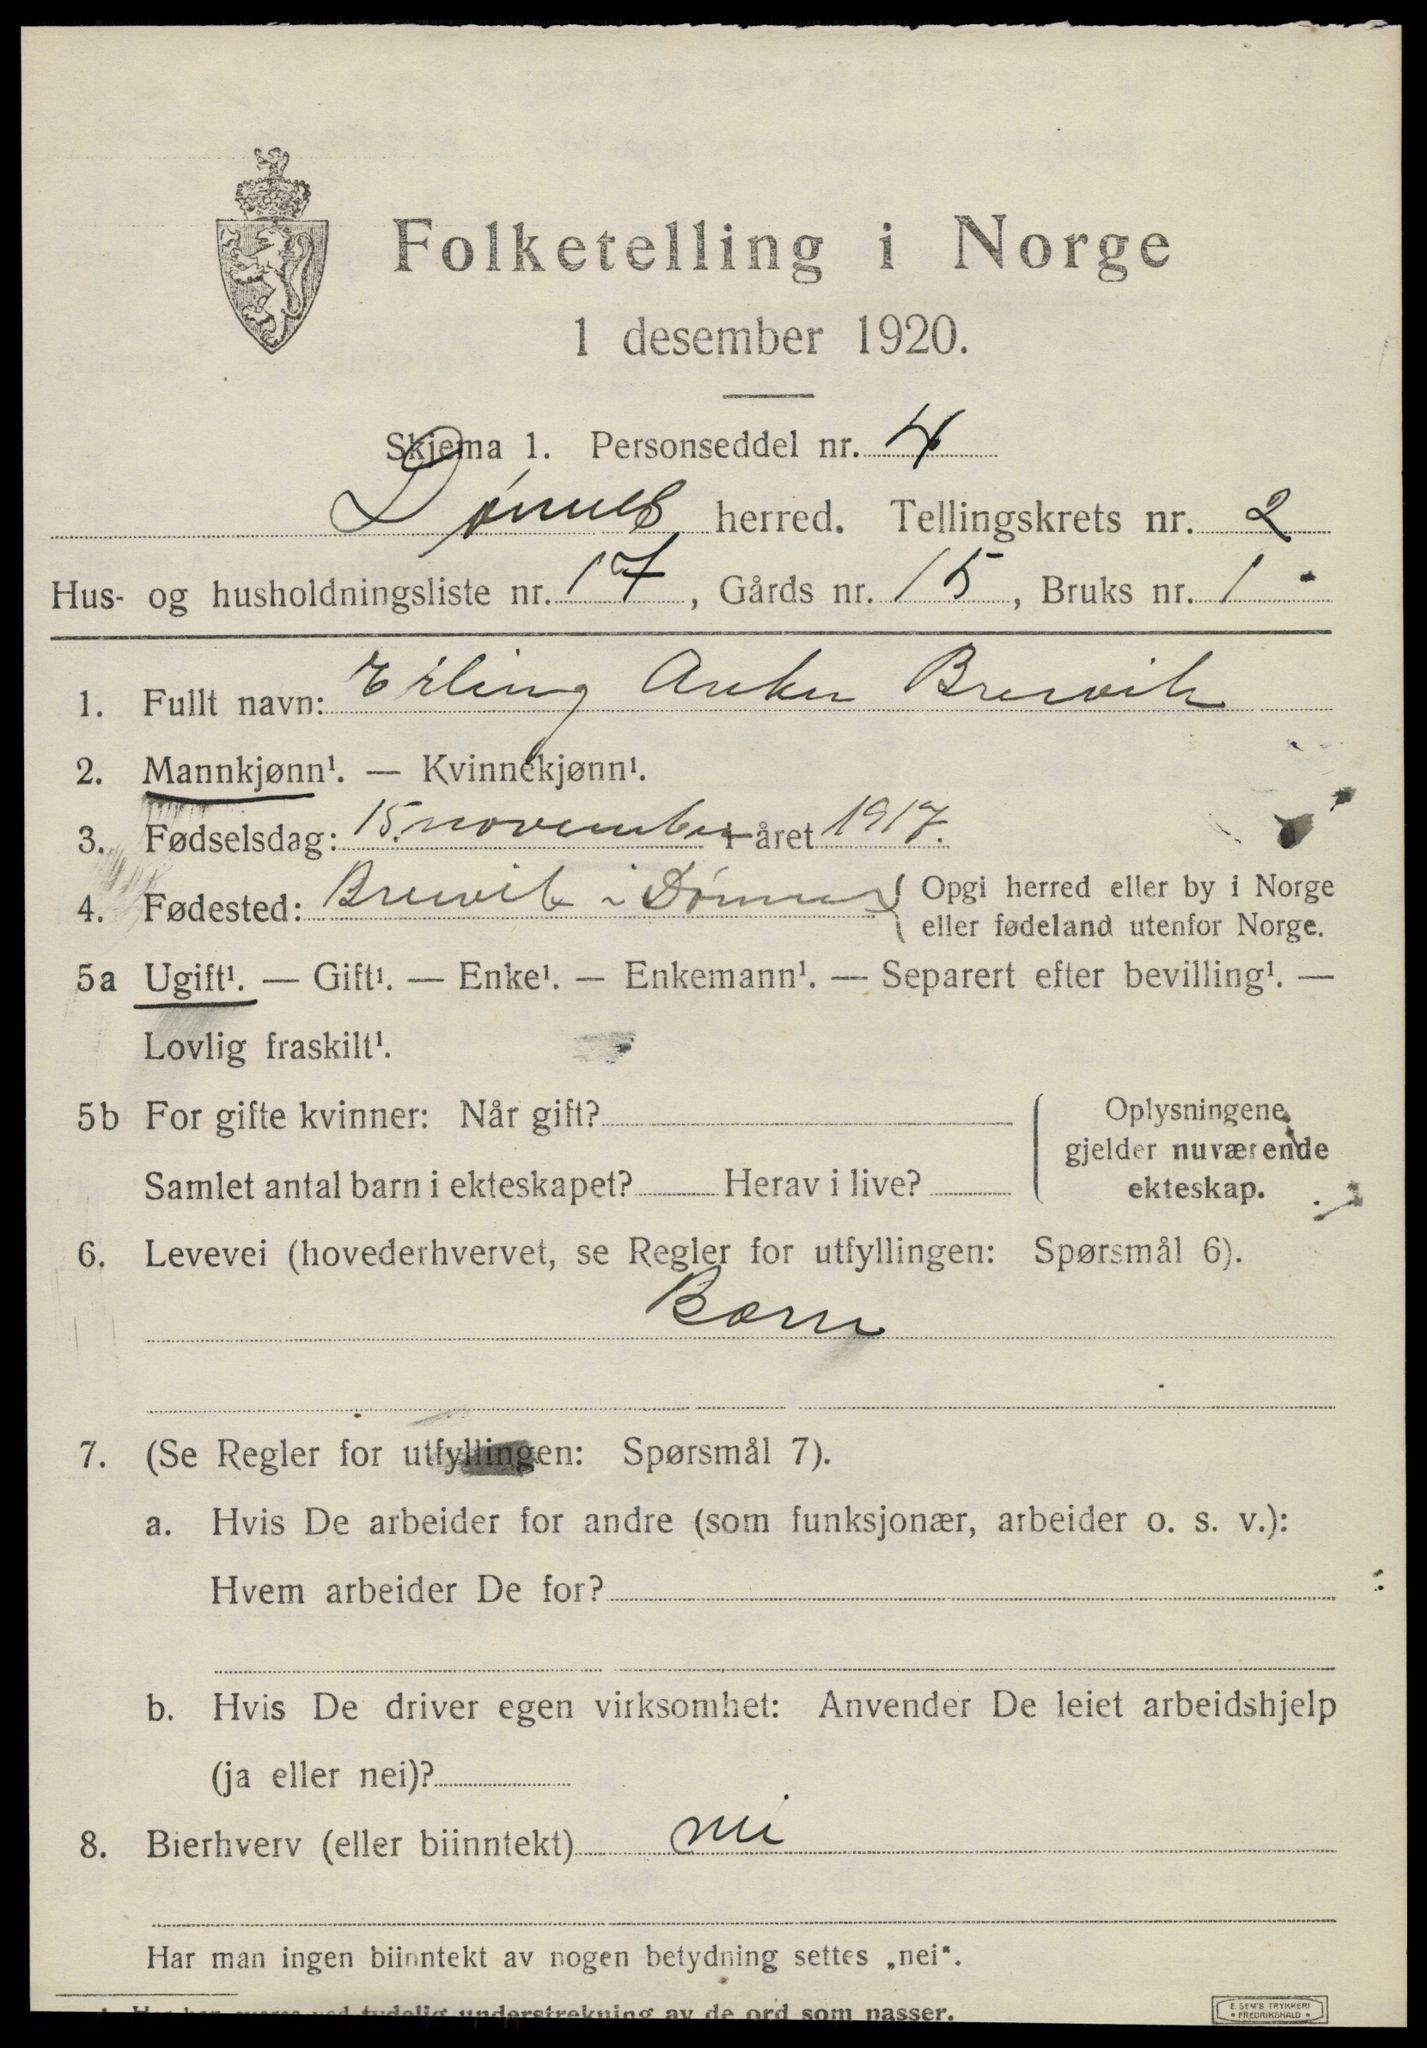 Folketelling i Norge
1 desember 1920.
Skjema 1. Personseddel nr. 4
Dønnes herred. Tellingskrets nr. 2
Hus- og husholdningsliste nr. 17, Gårds nr. 15, Bruks nr. 1
1. Fullt navn: Erling Anker Breivik
2. Mannkjønn¹. — Kvinnekjønn¹.
3. Fødselsdag: 15. november i året 1917.
4. Fødested: Breivik i Dønnes { Opgi herred eller by i Norge
eller fødeland utenfor Norge.
5a Ugift¹. — Gift¹. — Enke¹. — Enkemann¹. — Separert efter bevilling¹. —
Lovlig fraskilt¹.
5b For gifte kvinner: Når gift?
Samlet antal barn i ekteskapet? Herav i live?
Oplysningene
gjelder nuværende
ekteskap.
6. Levevei (hovederhvervet, se Regler for utfyllingen: Spørsmål 6).
Barn
7. (Se Regler for utfyllingen: Spørsmål 7).
a. Hvis De arbeider for andre (som funksjonær, arbeider o. s. v.):
Hvem arbeider De for?
b. Hvis De driver egen virksomhet: Anvender De leiet arbeidshjelp
(ja eller nei)?
8. Bierhverv (eller biinntekt) nei
Har man ingen biinntekt av nogen betydning settes „nei“.
1 Her kan svares ved tydelig understrekning av de ord som passer.
E. SEM'S TRYKKERI
• FREDRIKSHALD •